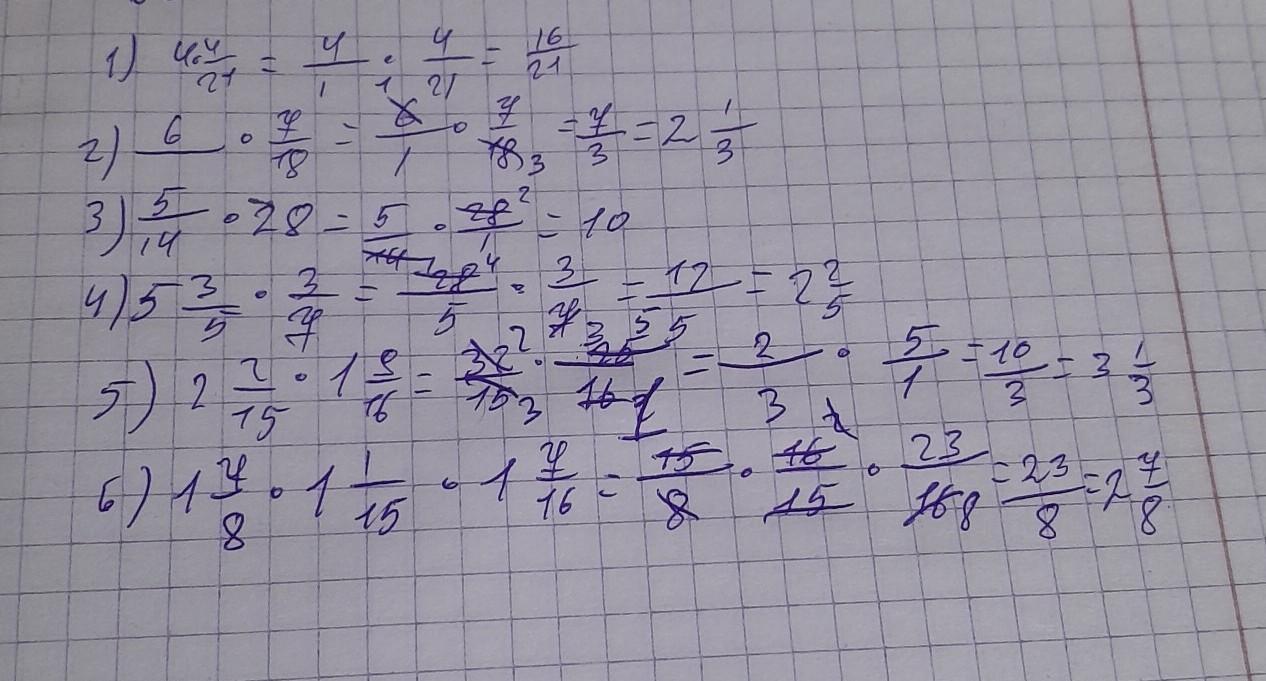 1) 4·4/21 = 4/1 · 4/21 = 16/21
2) 6 · 7/18 = 6/1 · 7/18 3 = 7/3 = 2 1/3
3) 5/14 · 28 = 5/14 · 28 2/1 = 10
4) 5 3/5 · 3/7 = 28 4/5 · 3/7 = 12/5 = 2 2/5
5) 2 2/15 · 1 9/16 = 32 2/15 3 · 25 5/16 1 = 2/3 · 5/1 = 10/3 = 3 1/3
6) 1 7/8 · 1 1/15 · 1 7/16 = 15/8 · 16 2/15 · 23/16 8 = 23/8 = 2 7/8